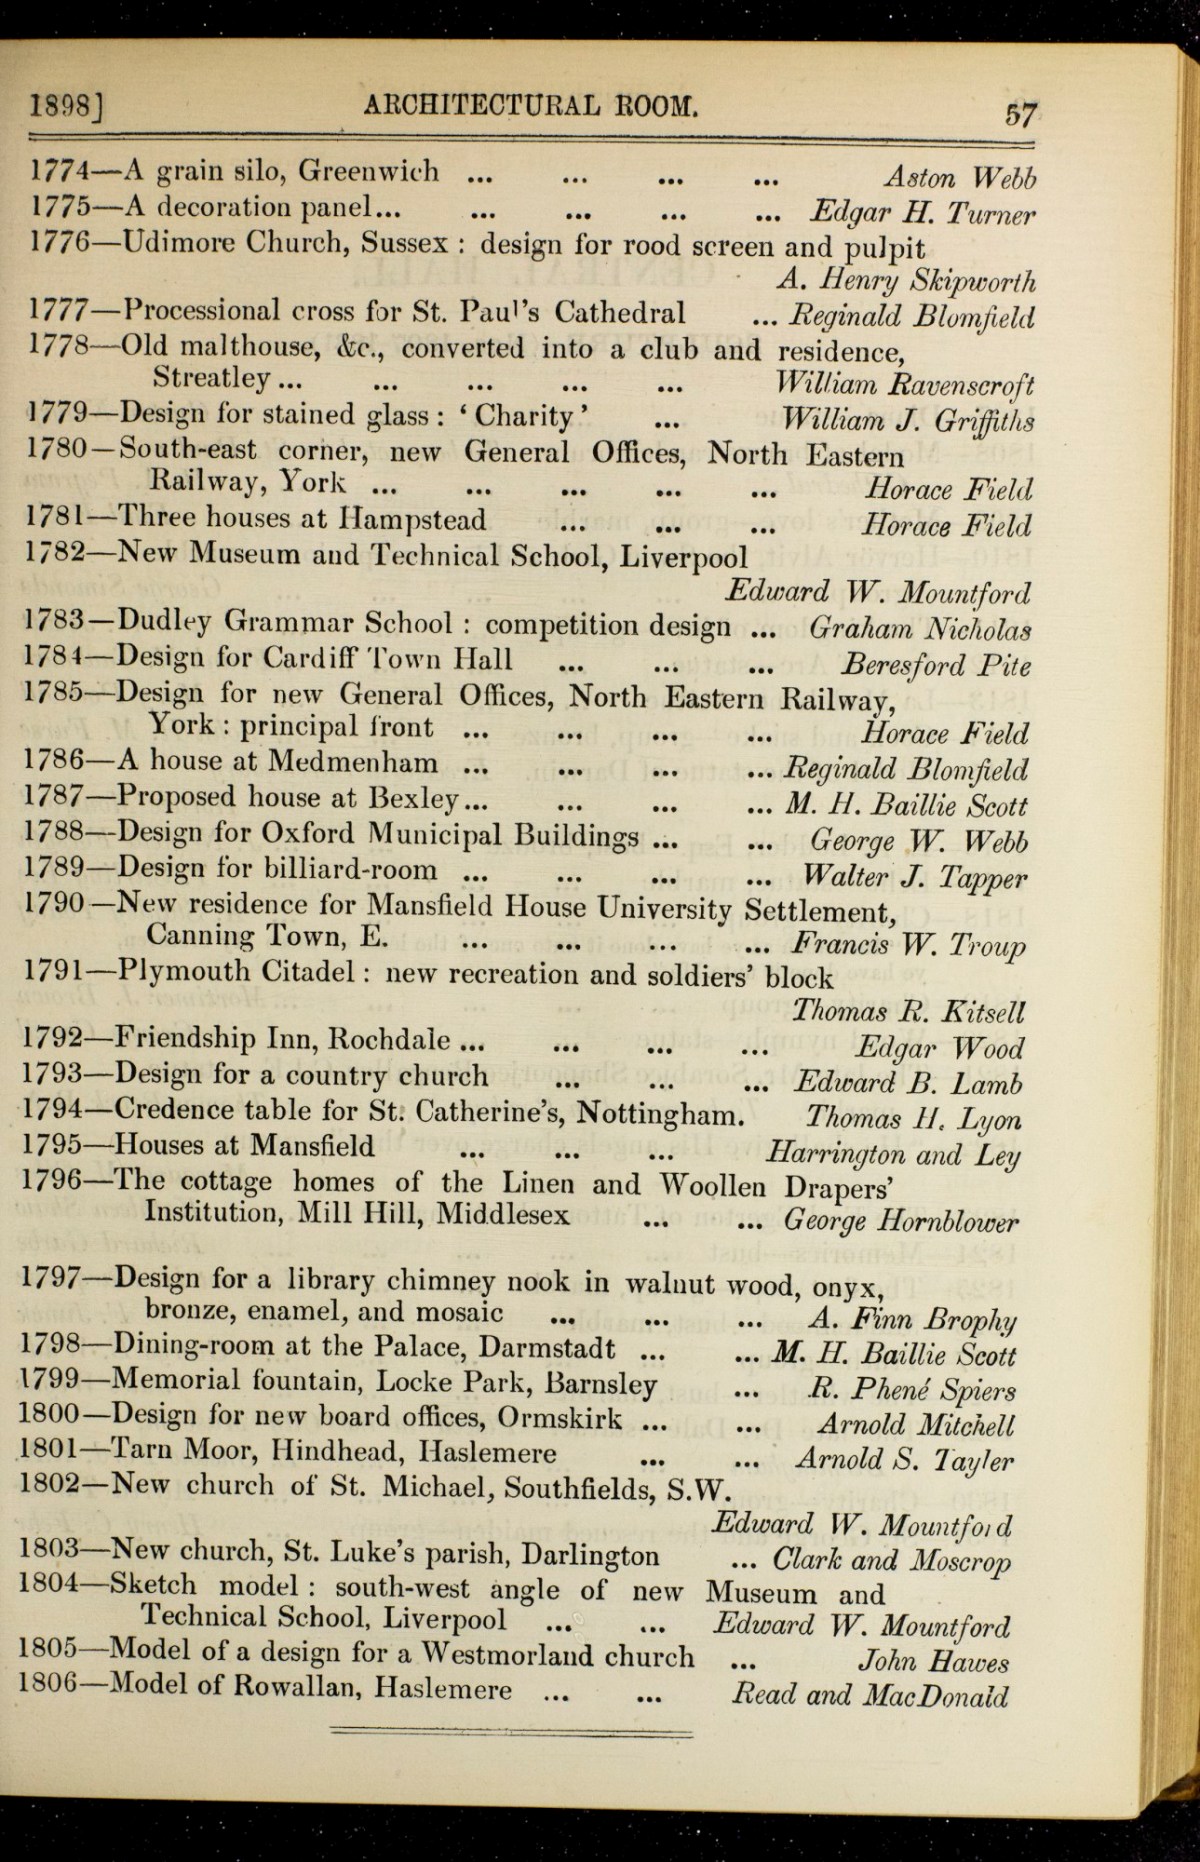 1898] ARCHITECTURAL ROOM. 57
1774—A grain silo, Greenwich ... ... ... ... Aston Webb
1775—A decoration panel... ... ... ... ... Edgar H. Turner
1776—Udimore Church, Sussex : design for rood screen and pulpit
A. Henry Skipworth
1777—Processional cross for St. Paul's Cathedral ... Reginald Blomfield
1778—Old malthouse, &c., converted into a club and residence,
Streatley ... ... ... ... ... William Ravenscroft
1779—Design for stained glass : ‘ Charity ’ ... William J. Griffiths
1780—South-east corner, new General Offices, North Eastern
Railway, York ... ... ... ... ... Horace Field
1781—Three houses at Hampstead ... ... ... Horace Field
1782—New Museum and Technical School, Liverpool
Edward W. Mountford
1783—Dudley Grammar School : competition design ... Graham Nicholas
1784—Design for Cardiff Town Hall ... ... ... Beresford Pite
1785—Design for new General Offices, North Eastern Railway,
York : principal front ... ... ... ... Horace Field
1786—A house at Medmenham ... ... ... ... Reginald Blomfield
1787—Proposed house at Bexley... ... ... ... M. H. Baillie Scott
1788—Design for Oxford Municipal Buildings ... ... George W. Webb
1789—Design for billiard-room ... ... ... ... Walter J. Tapper
1790—New residence for Mansfield House University Settlement,
Canning Town, E. ... ... ... ... Francis W. Troup
1791—Plymouth Citadel : new recreation and soldiers’ block
Thomas R. Kitsell
1792—Friendship Inn, Rochdale ... ... ... ... Edgar Wood
1793—Design for a country church ... ... ... Edward B. Lamb
1794—Credence table for St. Catherine’s, Nottingham. Thomas H. Lyon
1795—Houses at Mansfield ... ... ... Harrington and Ley
1796—The cottage homes of the Linen and Woollen Drapers’
Institution, Mill Hill, Middlesex ... ... George Hornblower
1797—Design for a library chimney nook in walnut wood, onyx,
bronze, enamel, and mosaic ... ... ... A. Finn Brophy
1798—Dining-room at the Palace, Darmstadt ... ... M. H. Baillie Scott
1799—Memorial fountain, Locke Park, Barnsley ... R. Phené Spiers
1800—Design for new board offices, Ormskirk ... ... Arnold Mitchell
1801—Tarn Moor, Hindhead, Haslemere ... ... Arnold S. Tayler
1802—New church of St. Michael, Southfields, S.W.
Edward W. Mountford
1803—New church, St. Luke’s parish, Darlington ... Clark and Moscrop
1804—Sketch model : south-west angle of new Museum and
Technical School, Liverpool ... ... Edward W. Mountford
1805—Model of a design for a Westmorland church ... John Hawes
1806—Model of Rowallan, Haslemere ... ... Read and MacDonald